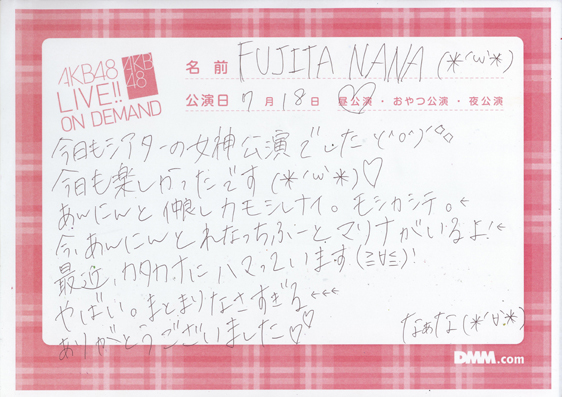 AKB48
LIVE!!
ON DEMAND
AKB
48
名前 FUJITA NANA (*´ω`*)
公演日 7月18日 昼公演・おやつ公演・夜公演
今日もシアターの女神公演でした＼(^o^)／
今日も楽しかったです(*´ω`*)♡
あんにんと仲良しカモシレナイ。モシカシテ。←
今、あんにんとれなっちふーとマリナがいるよ!←
最近、カタカナにハマっています(≧∀≦)!
やばい。まとまりなさすぎる←←←
ありがとうございました♡♡
なぁな(*´∀`*)
DMM.com